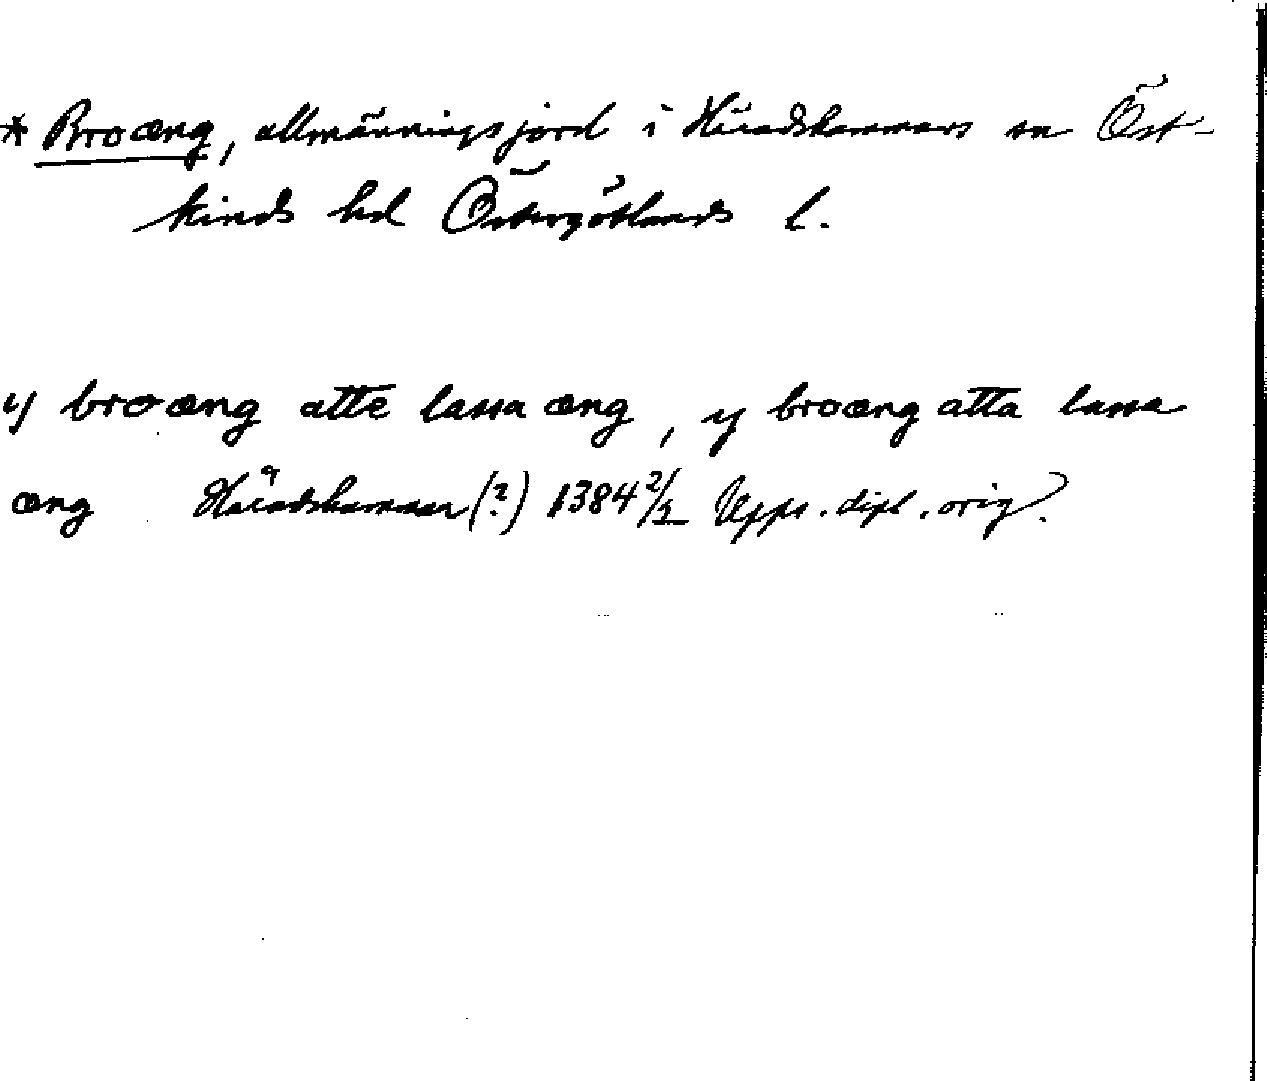 * Broæng, allmänningsjord i Häradshammars sn Öst-
kinds hd Östergötlands l.
y broæng atte lassa æng, y broæng atta lassa
æng Häradshammar (?) 1384 2/2 Upps. dipl. orig.